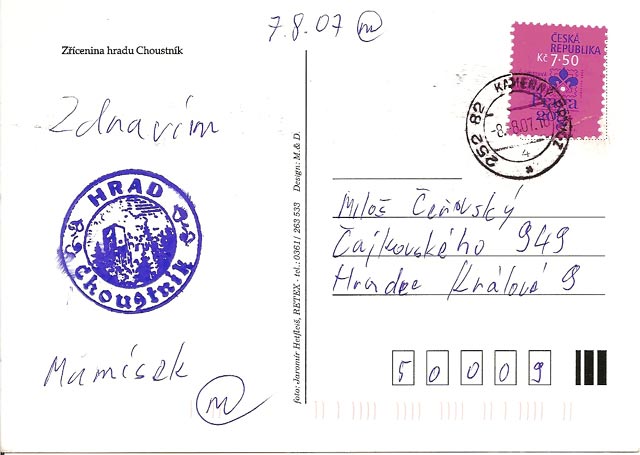 7.8.07 m
Zřícenina hradu Choustník
ČESKÁ
REPUBLIKA
Kč 7·50
Praga
252 82
-8.-8.07.
4
Zdravím
HRAD
Choustník
Mamísek
m
foto: Jaromír Hetfleiš, RETEX - tel.: 0361 / 263 533 Design: M. & D.
Miloš Čeňovský
Čajkovského 949
Hradec Králové 9
5 0 0 0 9